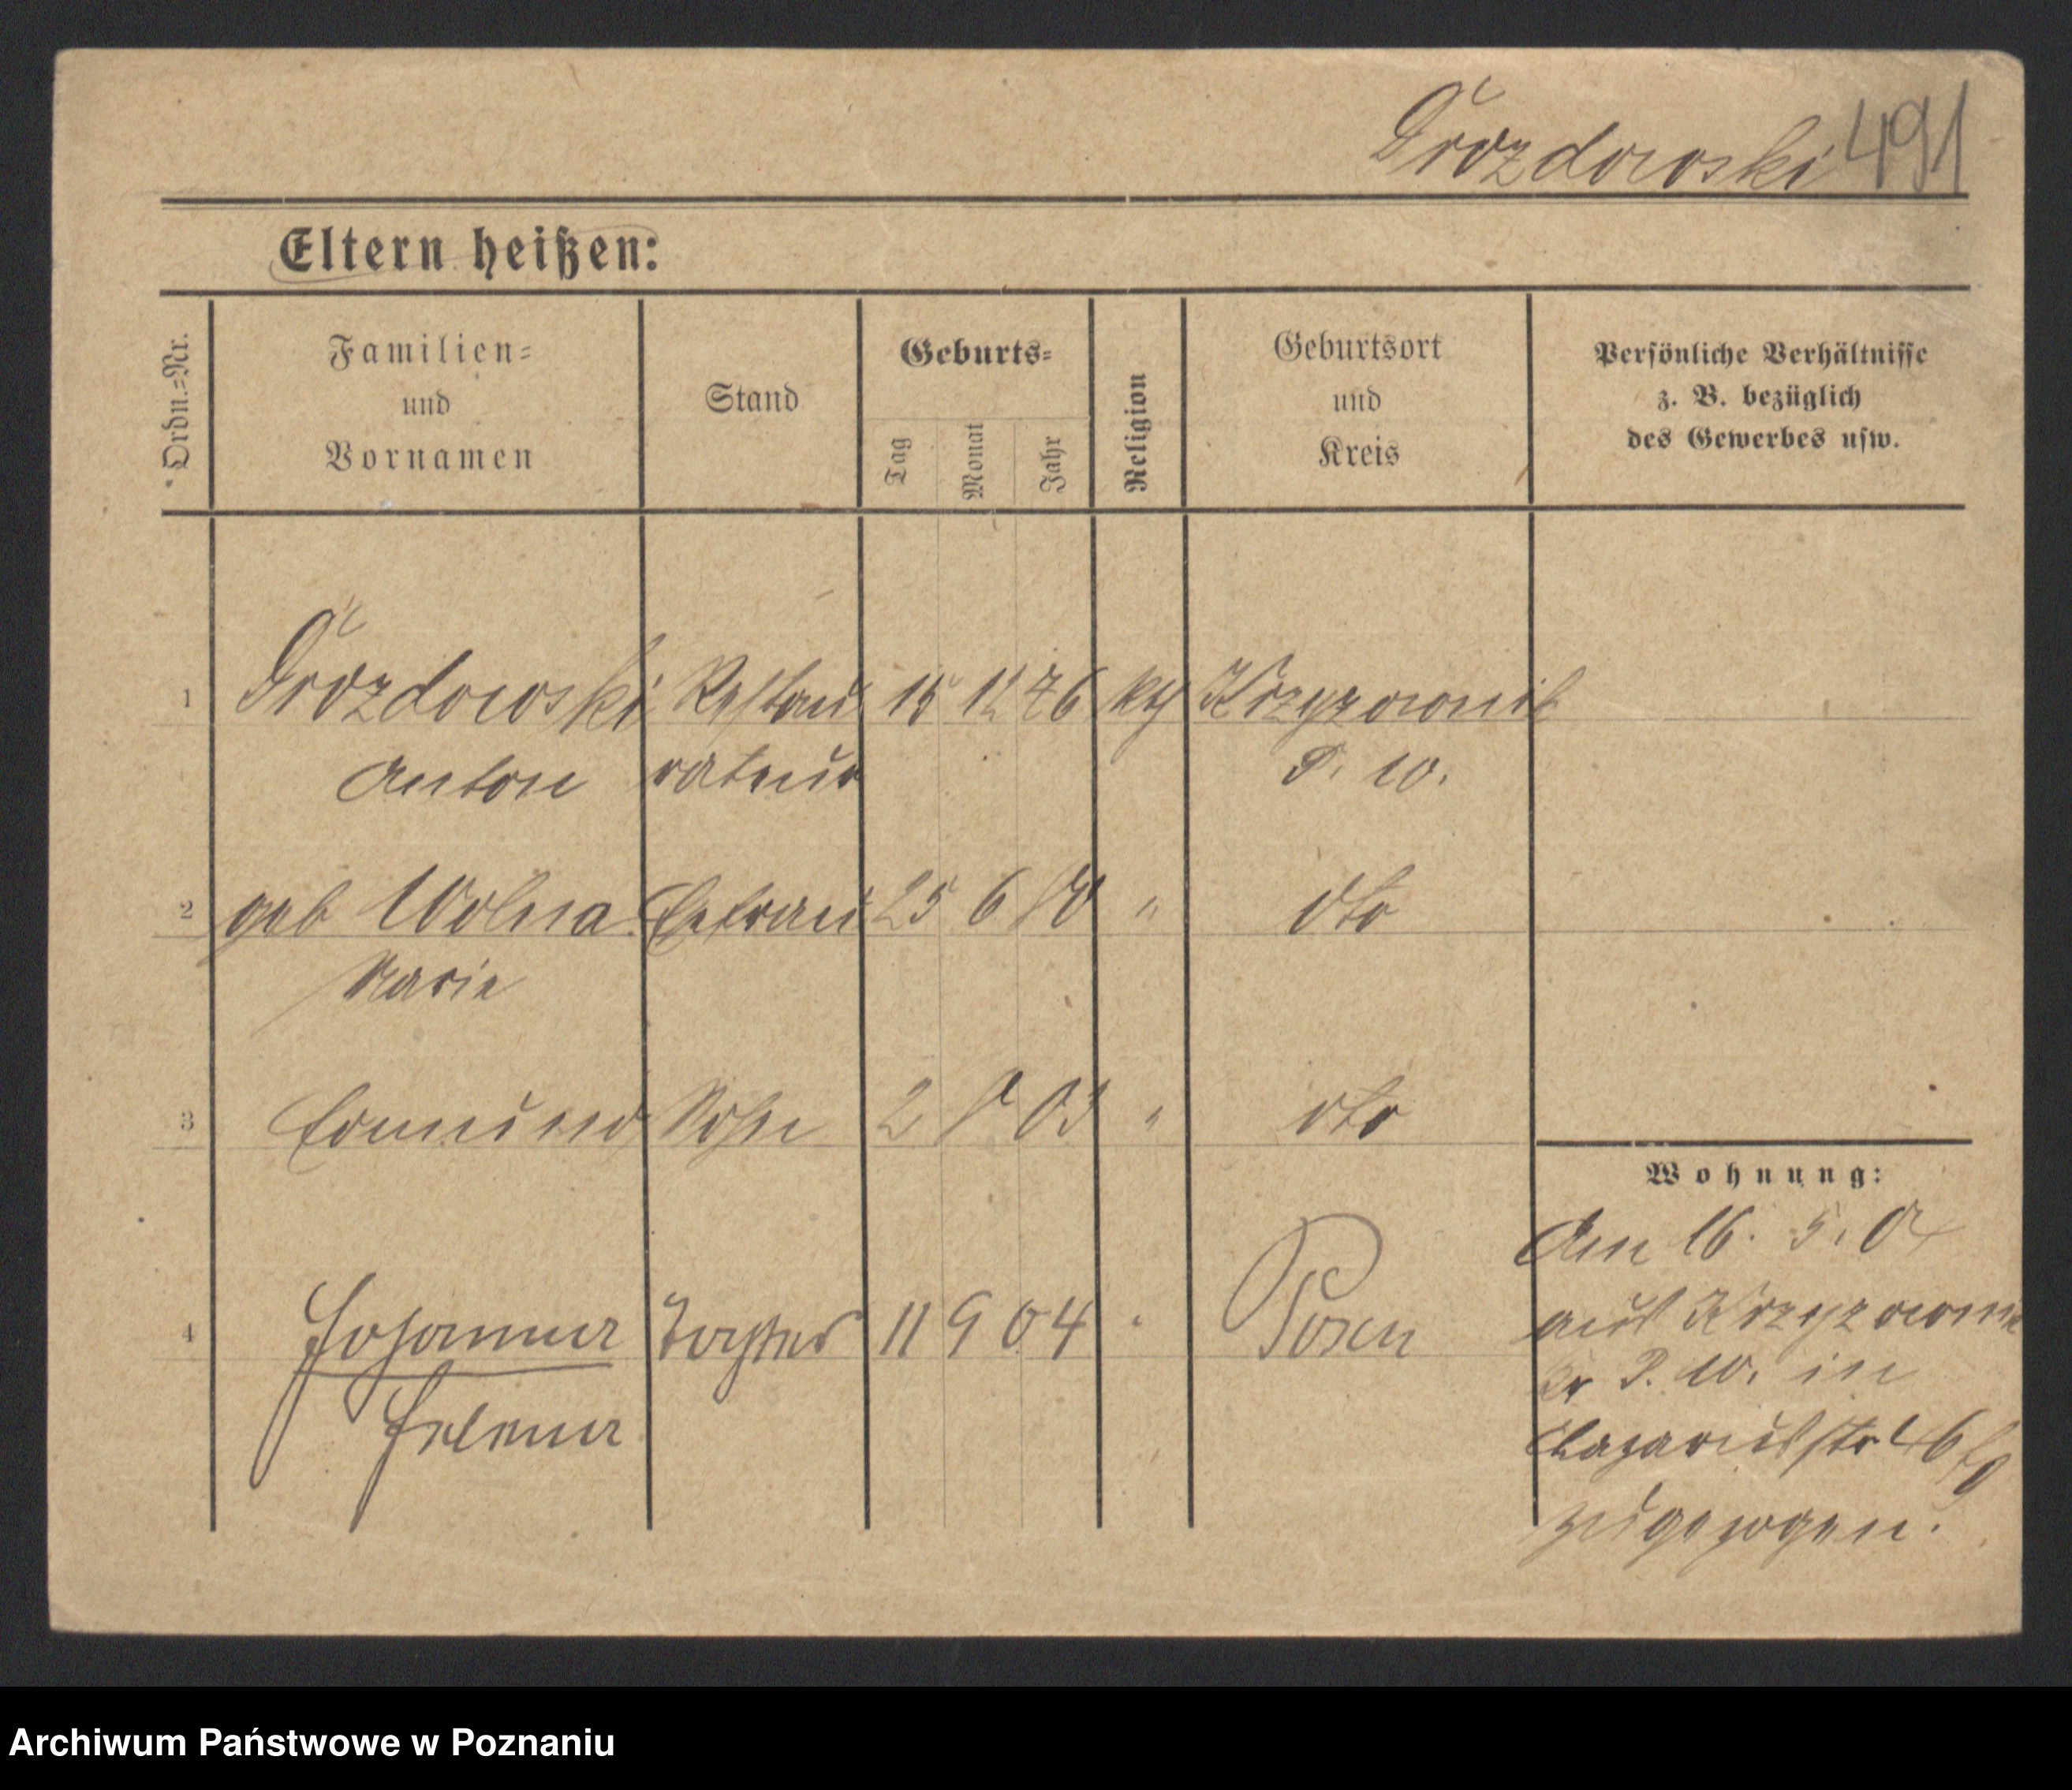 Drozdowski 491
Eltern heißen:
Ordn.=Nr.
Familien=
und
Vornamen
Stand
Geburts=
Tag
Monat
Jahr
Religion
Geburtsort
und
Kreis
Persönliche Verhältnisse
z. B. bezüglich
des Gewerbes usw.
1 Drozdowski Restau 15 12 76 kth
Anton rateur P. W.
2 geb Wolna Ehefrau 25 6 dto
Marie
3 Edmund Sohn 2 8 03 " dto
Wohnung:
Am 16. 5. 04
4 Johanna Tochter 11 9 04 " Posen
aus
Kr P. W. in
Helena
Lazarusstr
zugezogen.
Archiwum Państwowe w Poznaniu